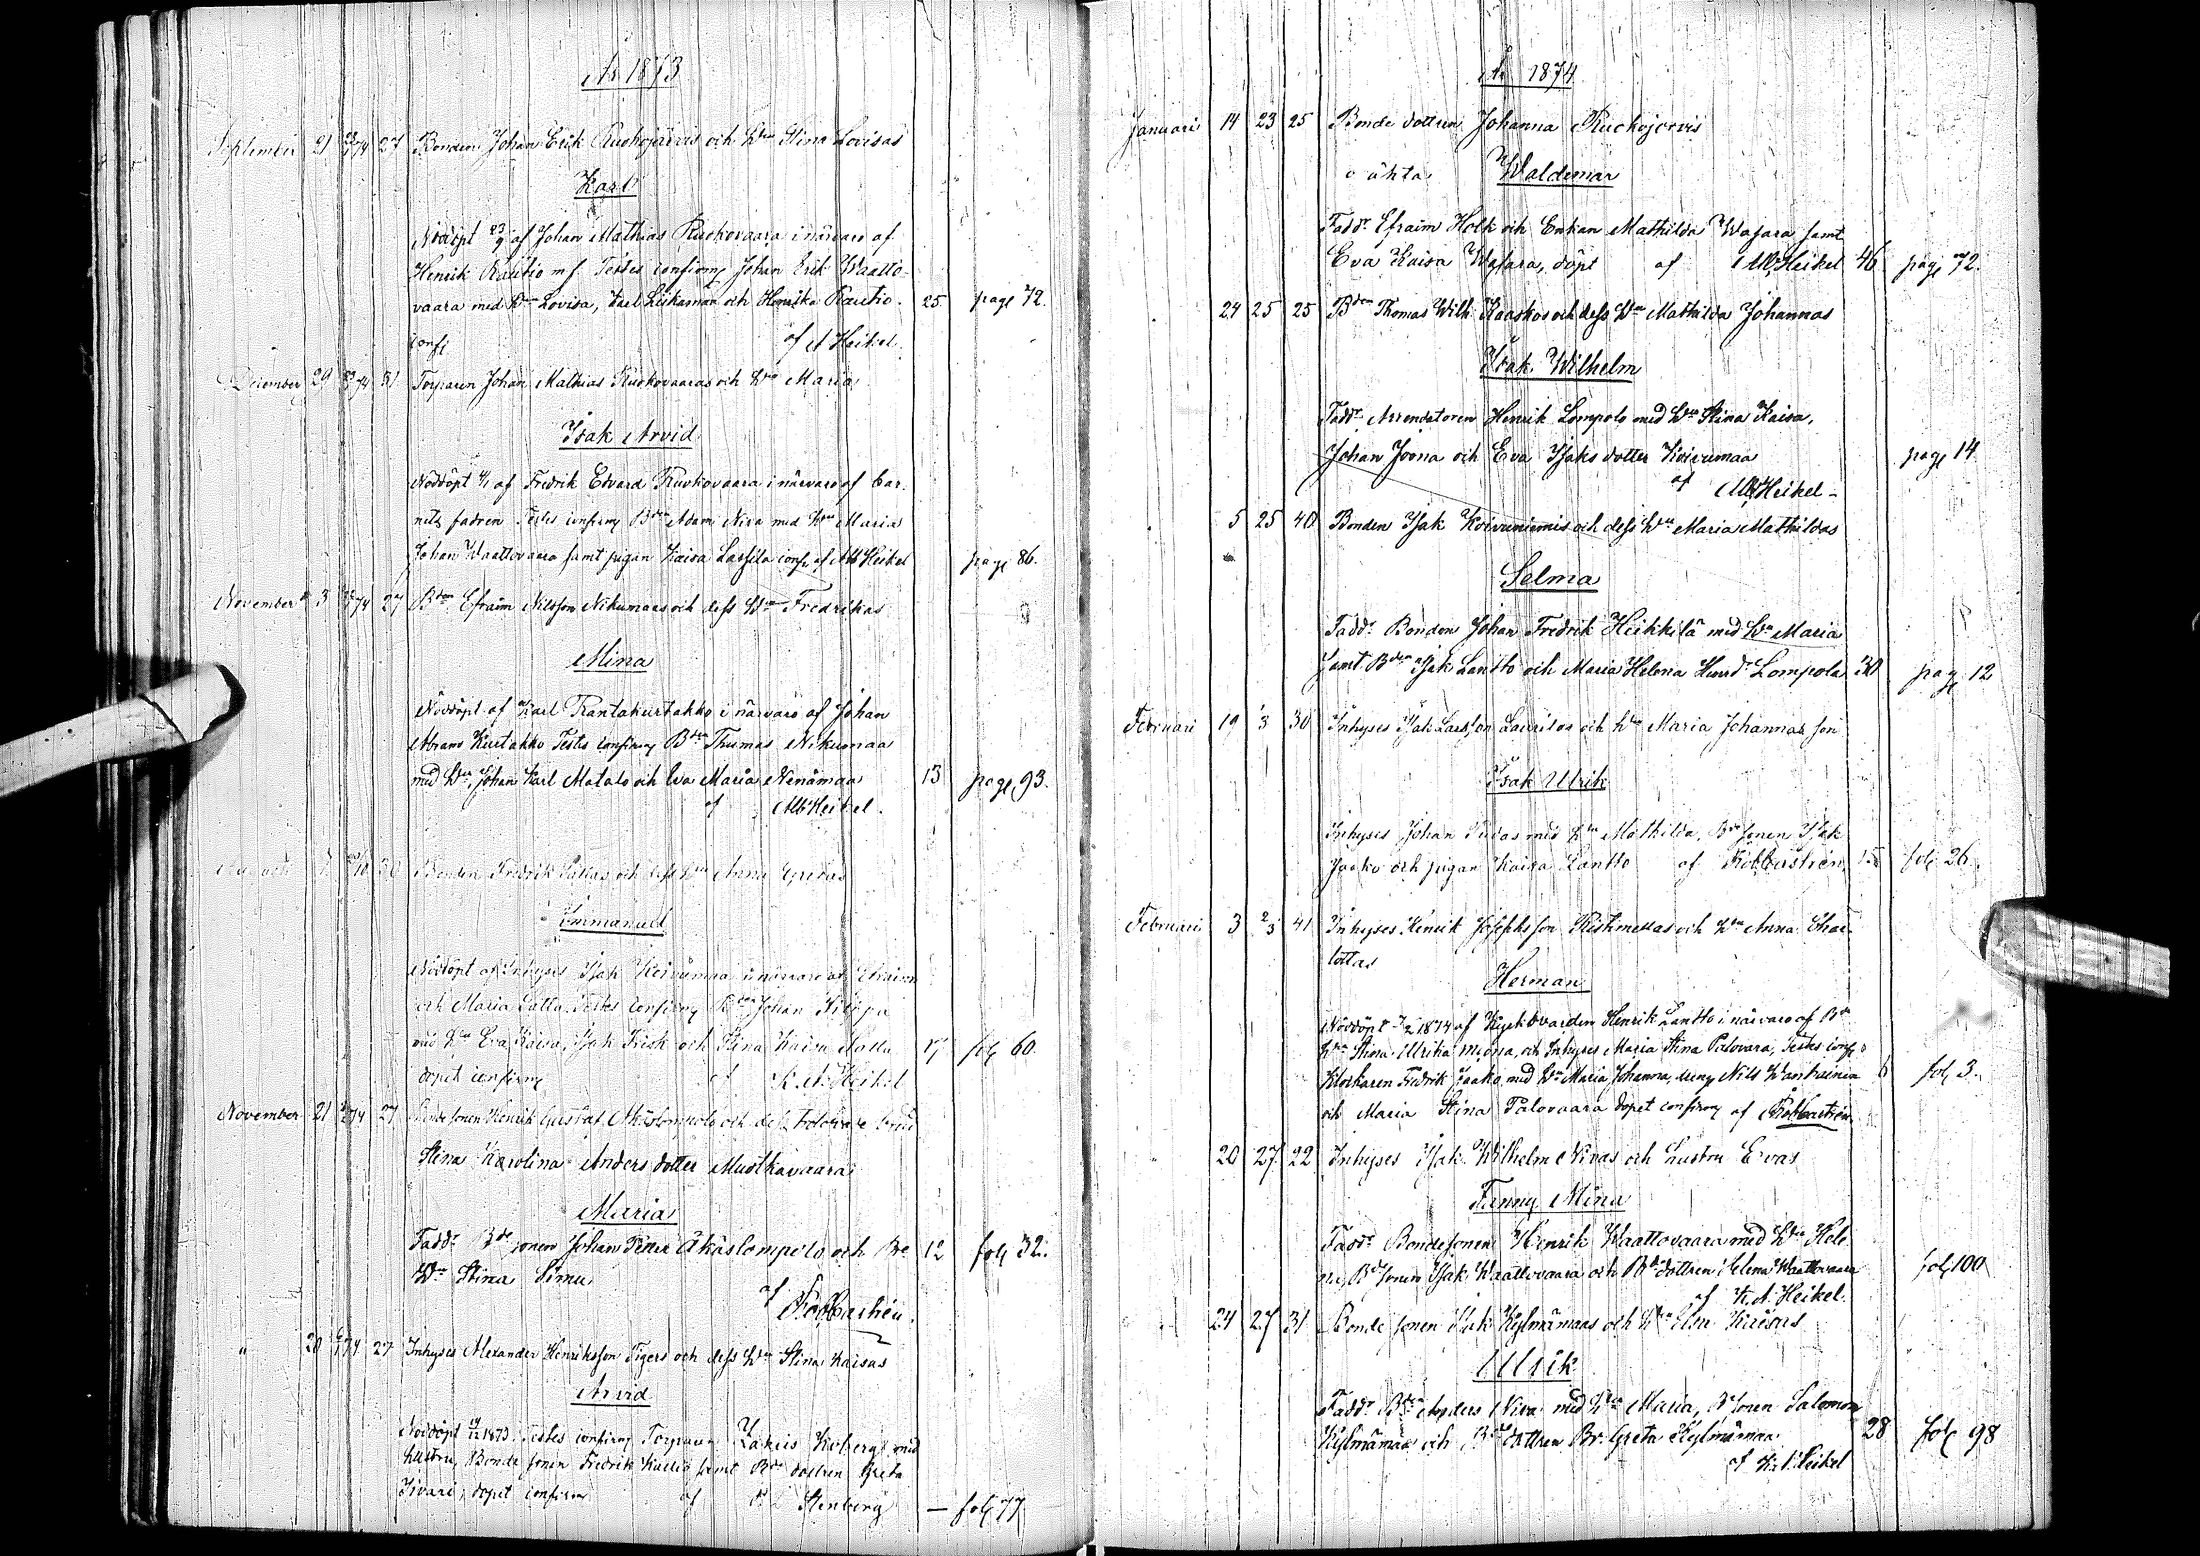 År 1873
September 21 23/1 74 27 Bonden Johan Erik Ruokojärvis och Hn Stina Lovisas
Karl
Nöddöpt 23/9 af Johan Mathias Ruokovaara i närvaro af
Henrik Rautio mf Testes confirm Johan Erik Waatto-
vaara med Hn Lovisa, Karl Liikamaa och Henrika Rautio. 25 page 72.
conf af A Heikel.
December 29 74 31 Torparen Johan Mathias Ruokovaaras och Hn Marias
Isak Arvid
Nöddöpt af Fredrik Edvard Ruokovaara i närvaro af bar-
nets fadren Testes confirm Bden Adam Niva med Hn Maria
Johan Waattovaara samt pigan Kaisa Lassila conf af Alb Heikel page 86.
November 3 74 27 Bden Efraim Nilsson Nikumaas och dess Hn Fredrikas
Mina
Nöddöpt af Karl Rantakurtakko i närvaro af Johan
Abram Kurtakko Testes confirm Bden Thomas Nikumaa
med Hn, Johan Karl Matalo och Eva Maria Nenämaa 13 page 93.
af Alb Heikel.
Bonden Fredrik och dess Hn Anna Gretas
Immanuel
Nöddöpt af Inhyses Isak Koivumaa i närvaro af Efraim
och Maria Testes confirm Bden Johan
med Hn Eva Kaisa, Isak Frisk och Stina Kaisa 17 fol 60.
döpet confirm af K.A. Heikel
November 21 74 27 Bondesonen Henrik Gustaf Äkäslompolo och dess trolofvade brud
Stina Karolina Anders dotter Mustkavaara
Maria
Fadd. Bde sonen Johan Petter Äkäslompolo och Be 12 fol 32.
Hn Stina Simu
af Robb
" 20 74 27 Inhyses Alexander Henriksson Tigers och dess Hn Stina Kaisas
Arvid
Nöddöpt 1873. Testes confirm Torparen Zakris Koberg med
hustru, Bonde sonen Fredrik Kallio samt Bde dottren Greta
döpet confirm af Stenberg — fol 77
År 1874
Januari 14 23 25 Bonde dottren Johanna Ruokojervis
o äkta Waldemar
Fadd. Efraim Holk och Enkan Mathilda Wasara samt
Eva Kaisa Wasara, döpt af Alb Heikel 46 page 72.
24 25 25 Bden Thomas Wilh. Kaaskos och dess Hn Mathilda Johannas
Isak Wilhelm
Fadd. Arrendatoren Henrik Lompolo med Hn Stina Kaisa,
Johan Joona och Eva Isaks dotter Koivumaa page 14
af Alb Heikel -
5 25 40 Bonden Isak Koivuniemis och dess Hn Maria Mathildas
Selma
Fadd. Bonden Johan Fredrik Heikkilä med Hn Maria
samt Bden Isak Lantto och Maria Helena Henrd. Lompola 30 page 12
Februari 19 3 30 Inhyses Isak Larsson Laurilas och Hn Maria Johannas son
Isak Ulrik
Inhyses Johan med Hn Mathilda, Bde sonen Isak
Jaako och pigan Kaisa Lantto af Robb 15 fol 26.
Februari 3 2/3 41 Inhyses Henrik Josephsson Ristimellas och Hn Anna Char-
lottas
Herman
Nöddöpt 1874 af Kyrkovärden Henrik Lantto i närvaro af Bd
Hn Stina Ulrika och Inhyses Maria Stina Palovara, Testes conf
Klockaren Fredrik Jaako med Hn Maria Johanna, dreng Nils Wanhainen 6 fol 3.
och Maria Stina Palovaara döpet confirm af Robb
20 27 22 Inhyses Isak Wilhelm Nivas och hustru Evas
Fanny Mina
Fadd. Bondesonen Henrik Waattovaara med Hn Hele-
na, Bd sonen Isak Waattovaara och Bde dottren Selma Waattovaara fol 100
af K.A. Heikel.
24 27 31 Bonde sonen Isak Kylmämaas och Hn Elsa Kaisas
Ulrik
Fadd. Bden Anders Niva med Hn Maria, Bd sonen Salomon
Kylmämaa och Bde dottren Br. Greta Kylmämaa 28 fol 98
af K.A. Heikel